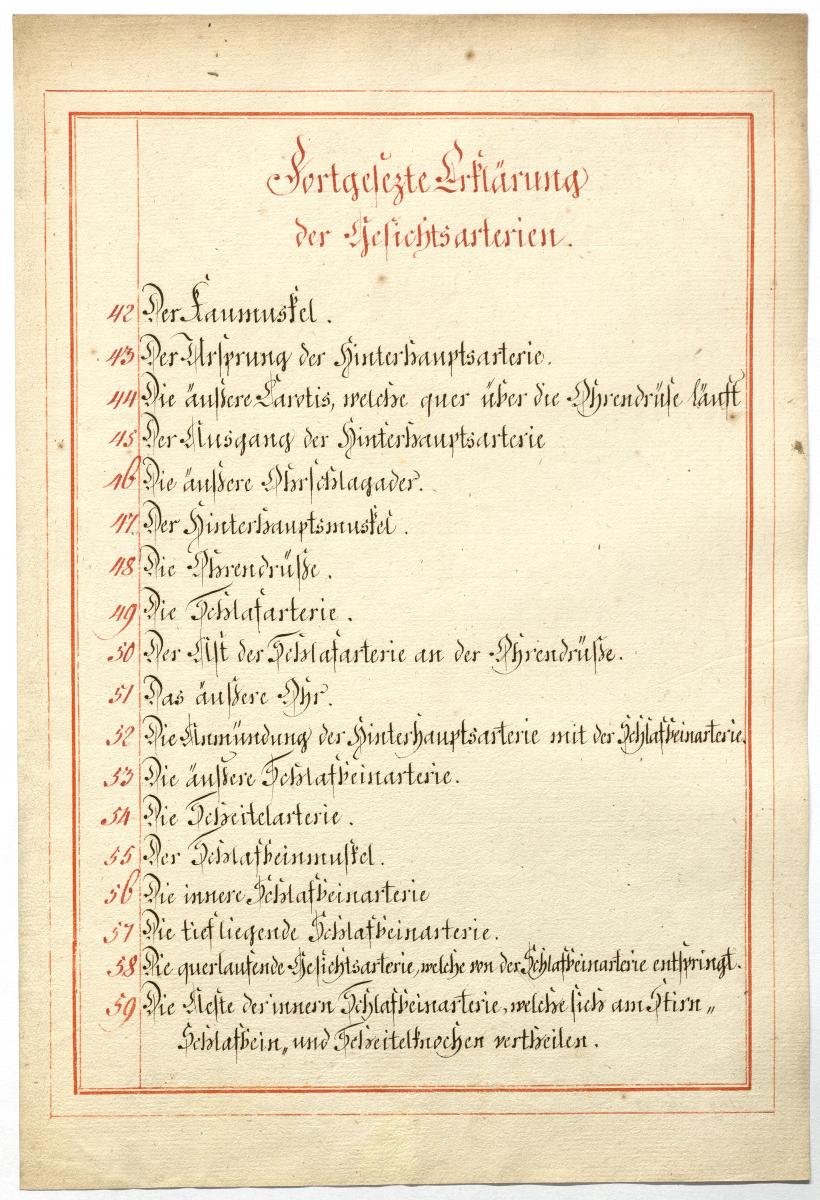 Fortgesezte Erklärung
der Gesichtsarterien.
42 Der Kaumuskel.
43 Der Ursprung der Hinterhauptsarterie.
44 Die äußere Carotis, welche quer über die Ohrendrüse läuft
45 Der Ausgang der Hinterhauptsarterie
46 Die äußere Ohrschlagader.
47. Der Hinterhauptsmuskel.
48 Die Ohrendrüße.
49 Die Schlafarterie.
50 Der Ast der Schlafarterie an der Ohrendrüße.
51 Das äußere Ohr.
52 Die Anmündung der Hinterhauptsarterie mit der Schlafbeinarterie.
53 Die äußere Schlafbeinarterie.
54 Die Scheitelarterie.
55 Der Schlafbeinmuskel.
56 Die innere Schlafbeinarterie
57 Die tiefliegende Schlafbeinarterie.
58 Die querlaufende Gesichtsarterie, welche von der Schlafbeinarterie entspringt.
59 Die Aeste der innern Schlafbeinarterie, welche sich am Stirn„
Schlafbein„ und Scheitelknochen vertheilen.